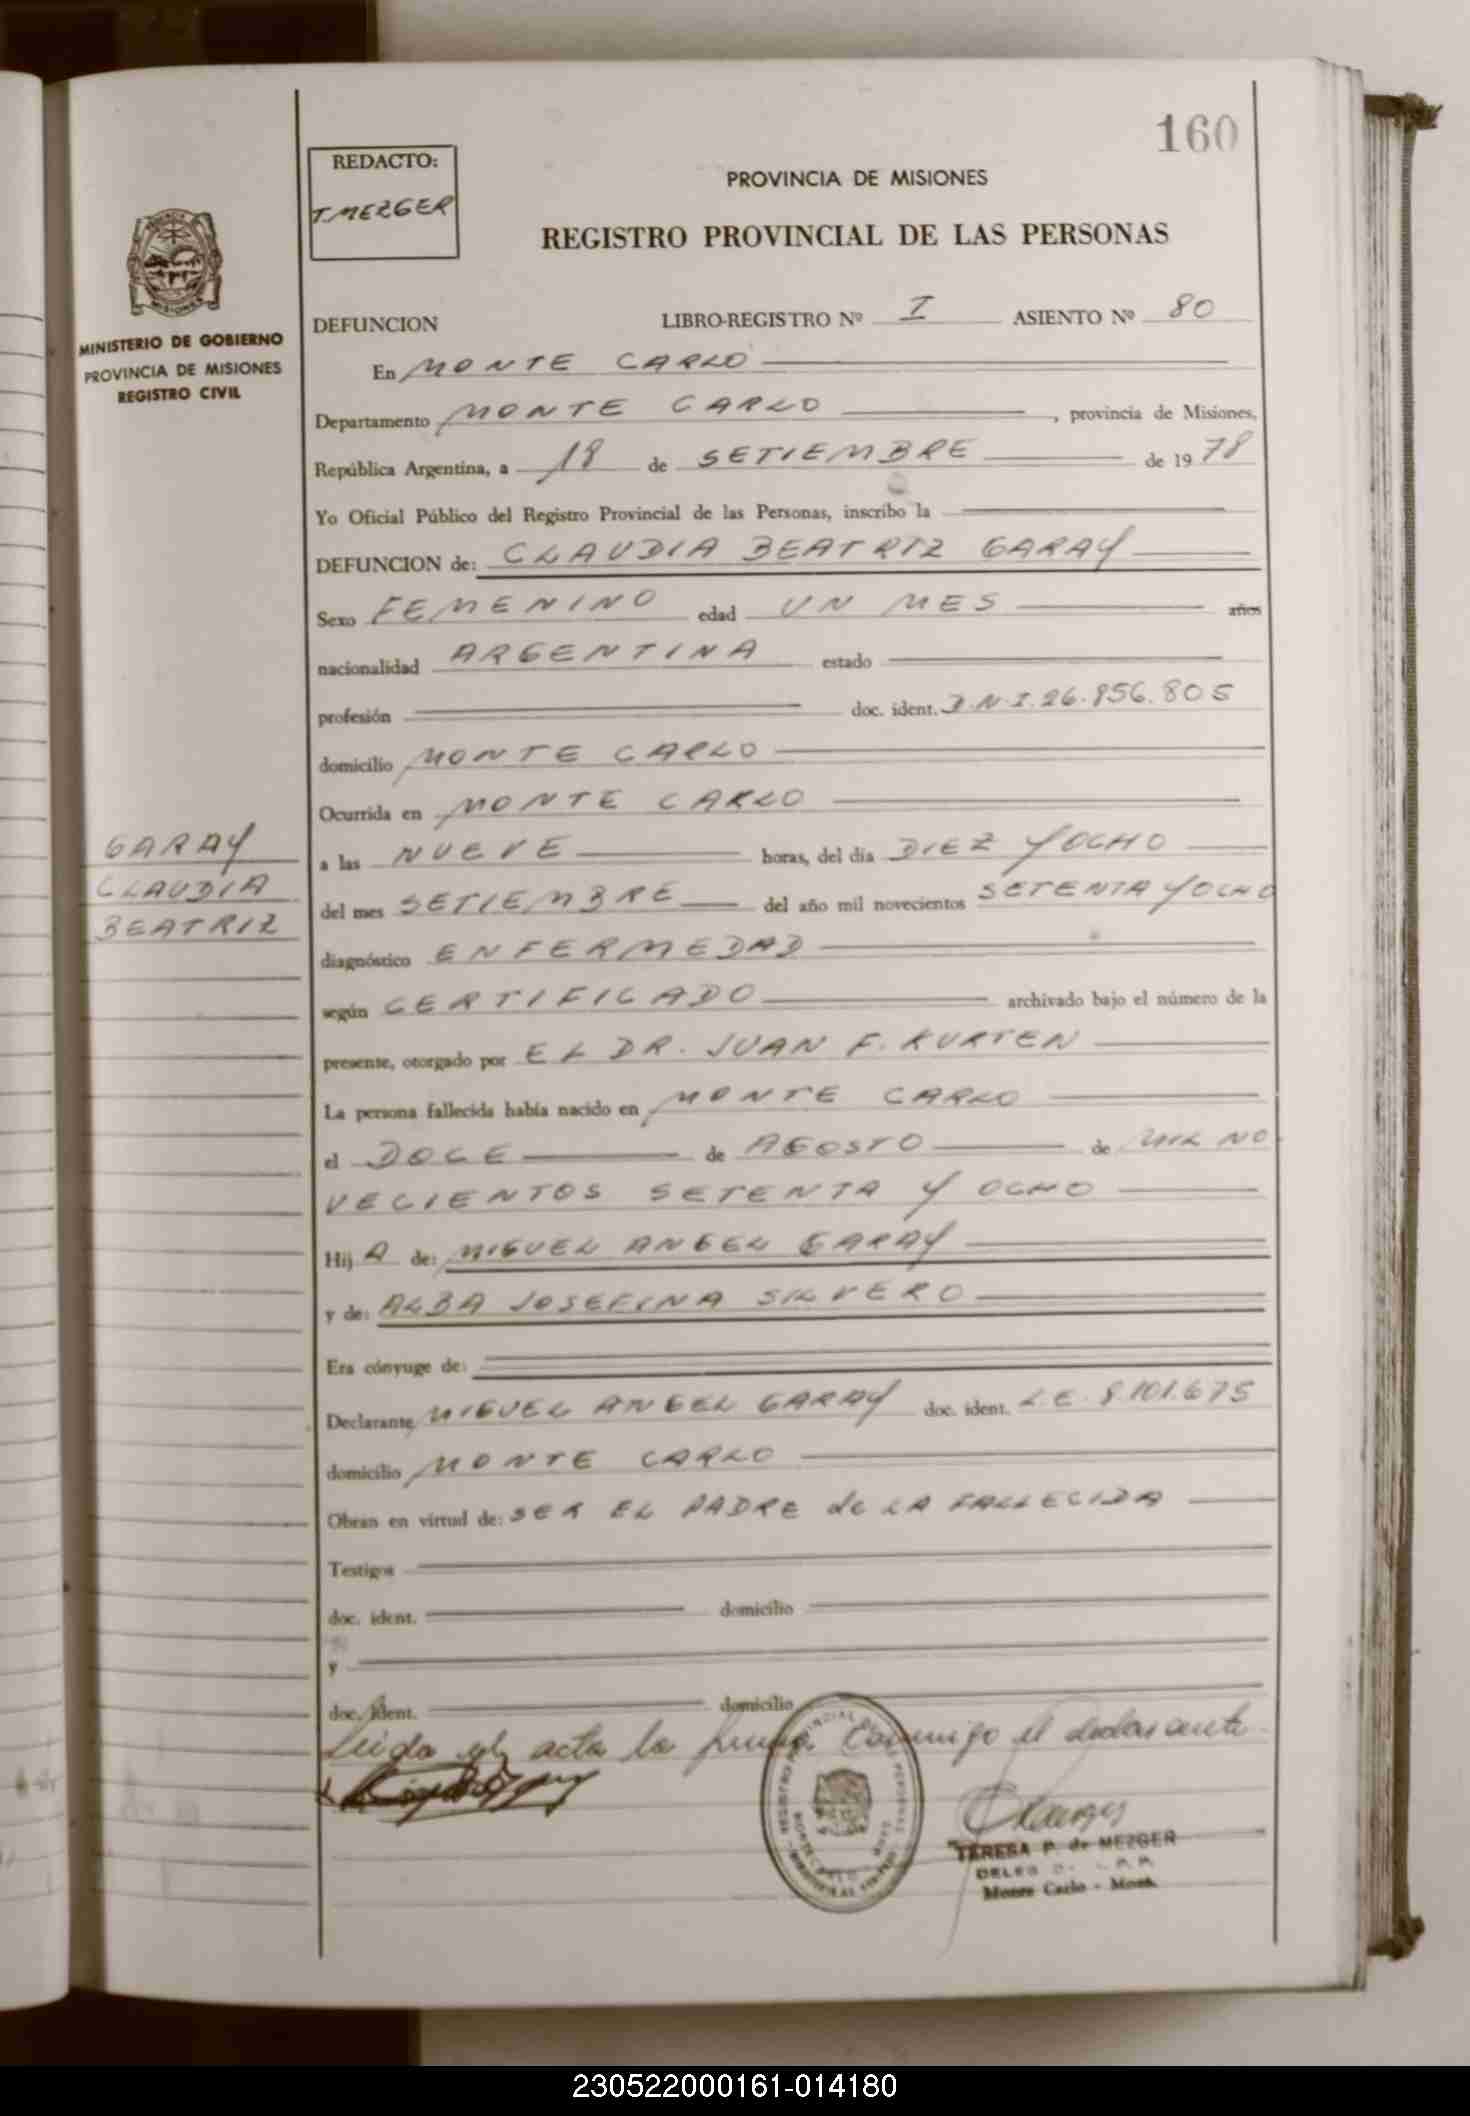 160
REDACTO:
T. MEZGER
PROVINCIA DE MISIONES
REGISTRO PROVINCIAL DE LAS PERSONAS
MINISTERIO DE GOBIERNO
PROVINCIA DE MISIONES
REGISTRO CIVIL
DEFUNCION LIBRO-REGISTRO Nº I ASIENTO Nº 80
En MONTE CARLO
Departamento MONTE CARLO, provincia de Misiones,
República Argentina, a 18 de SETIEMBRE de 1978
Yo Oficial Público del Registro Provincial de las Personas, inscribo la
DEFUNCION de: CLAUDIA BEATRIZ GARAY
Sexo FEMENINO edad UN MES años
nacionalidad ARGENTINA estado
profesión doc. ident. D.N.I. 26.856.805
domicilio MONTE CARLO
Ocurrida en MONTE CARLO
GARAY
CLAUDIA
BEATRIZ
a las NUEVE horas, del día DIEZ Y OCHO
del mes SETIEMBRE del año mil novecientos SETENTA Y OCHO
diagnóstico ENFERMEDAD
según CERTIFICADO archivado bajo el número de la
presente, otorgado por EL DR. JUAN F. KURTEN
La persona fallecida había nacido en MONTE CARLO
el DOCE de AGOSTO de MIL NO
VECIENTOS SETENTA Y OCHO
Hij A de: MIGUEL ANGEL GARAY
y de: ALBA JOSEFINA SILVERO
Era cónyuge de:
Declarante MIGUEL ANGEL GARAY doc. ident. L.E. 8.101.675
domicilio MONTE CARLO
Obran en virtud de: SER EL PADRE de LA FALLECIDA
Testigos
doc. ident. domicilio
y
doc. ident. domicilio
Leida el acta la firma conmigo el declarante
TERESA P. de MEZGER
Monte Carlo - Mnes.
230522000161-014180